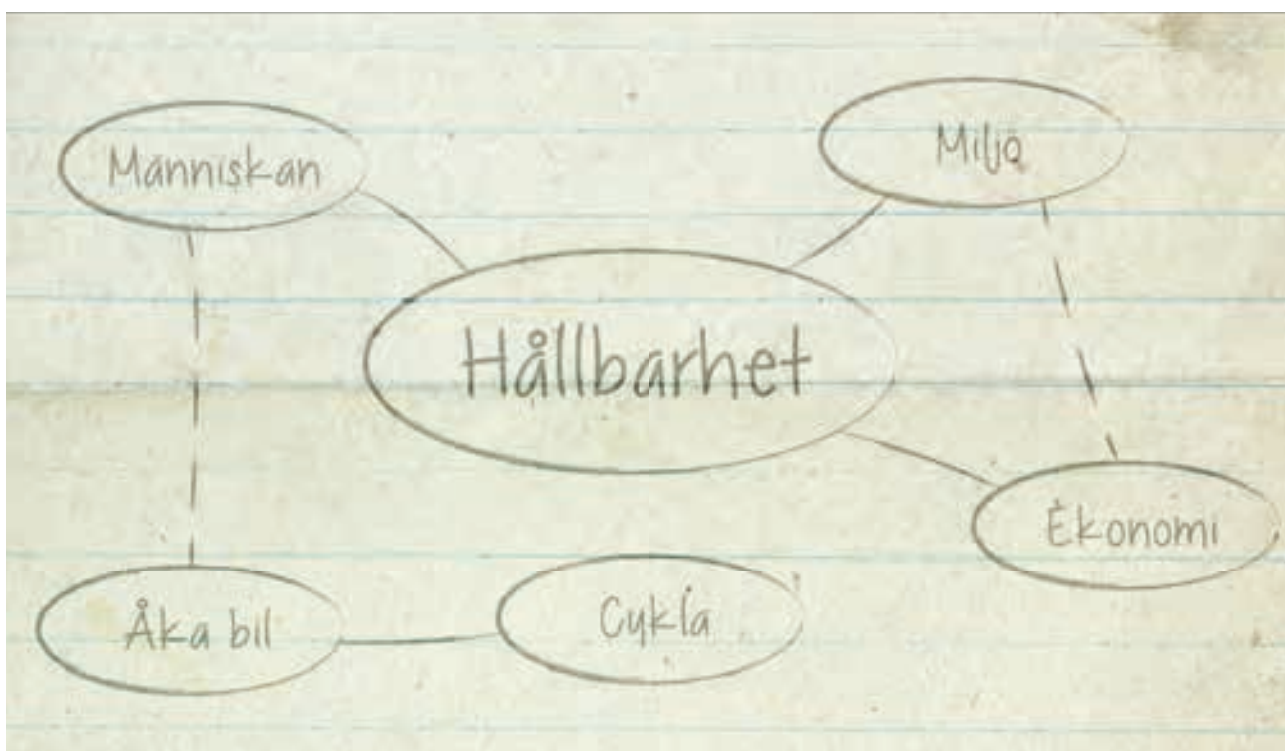 Människan
Miljö
Hållbarhet
Ekonomi
Åka bil
Cykla